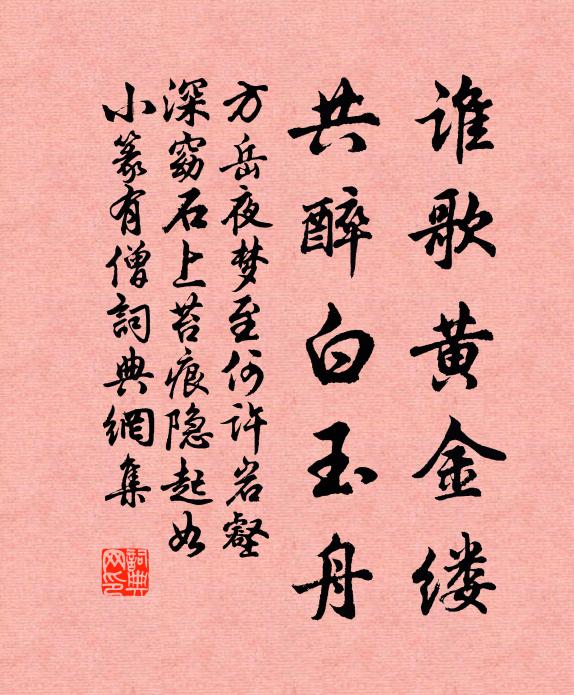 谁歌黄金缕
共醉白玉舟
方岳夜梦至何许岩壑
深窈石上苔痕隐起如
小篆有僧詞典網集
詞典网印